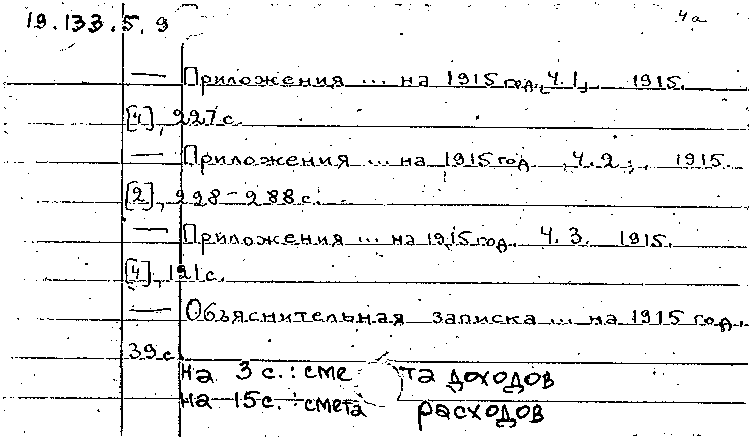 19.133.5.9 4а
— Приложения ... на 1915 год. Ч. 1. 1915.
[4], 227 с.
— Приложения ... на 1915 год. Ч. 2. 1915.
[2], 228-288 с.
— Приложения ... на 1915 год. Ч. 3. 1915.
[4], 121 с.
— Объяснительная записка ... на 1915 год.
39 с.
на 3 с.: смета доходов
на 15 с.: смета расходов